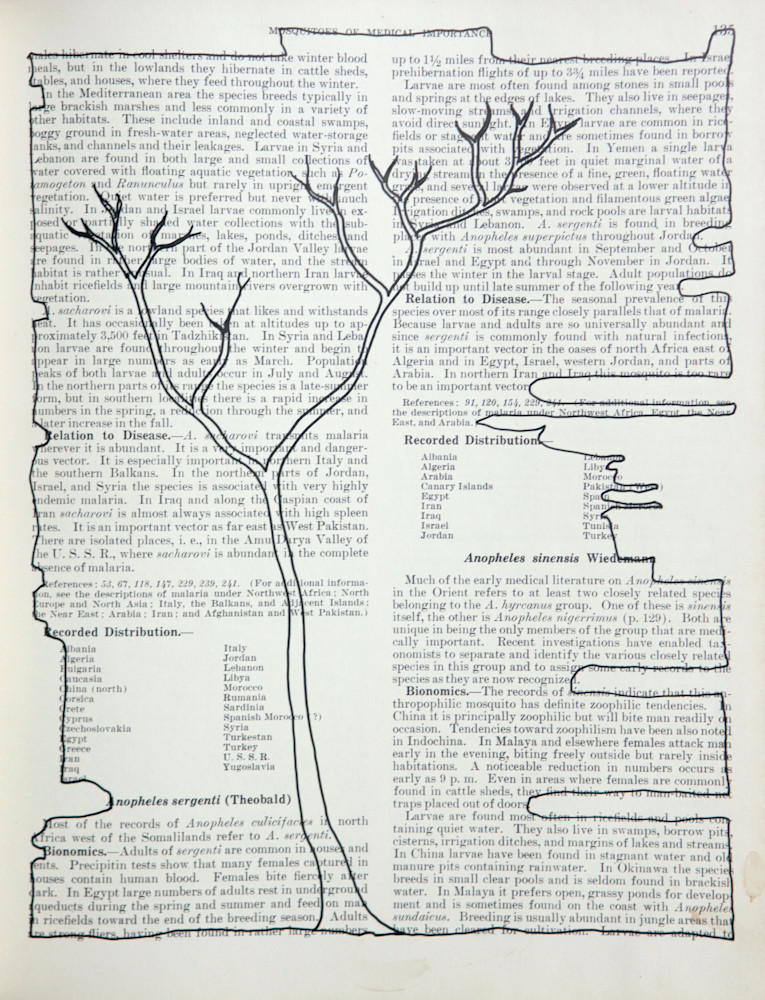 MOSQUITOES OF MEDICAL IMPORTANCE 135
males hibernate in cool shelters and do not take winter blood
meals, but in the lowlands they hibernate in cattle sheds,
stables, and houses, where they feed throughout the winter.
In the Mediterranean area the species breeds typically in
brackish marshes and less commonly in a variety of
other habitats. These include inland and coastal swamps,
boggy ground in fresh-water areas, neglected water-storage
tanks, and channels and their leakages. Larvae in Syria and
Lebanon are found in both large and small collections of
water covered with floating aquatic vegetation, such as Po-
tamogeton and Ranunculus but rarely in upright emergent
vegetation. water is preferred but never with much
salinity. In Jordan and Israel larvae commonly live in ex-
posed or partially shaded water collections with the sub-
aquatic vegetation of marshes, lakes, ponds, ditches, and
seepages. In the northern part of the Jordan Valley larvae
are found in rather large bodies of water, and the stream
habitat is rather unusual. In Iraq and northern Iran larvae
inhabit ricefields and large mountain rivers overgrown with
vegetation.
A. sacharovi is a lowland species that likes and withstands
heat. It has occasionally been taken at altitudes up to ap-
proximately 3,500 feet in Tadzhikistan. In Syria and Leba-
non larvae are found throughout the winter and begin to
appear in large numbers as early as March. Population
peaks of both larvae and adults occur in July and August.
In the northern parts of its range the species is a late-summer
form, but in southern localities there is a rapid increase in
numbers in the spring, a reduction through the summer, and
a later increase in the fall.
Relation to Disease.—A. sacharovi transmits malaria
wherever it is abundant. It is a very important and danger-
ous vector. It is especially important in northern Italy and
the southern Balkans. In the northern parts of Jordan,
Israel, and Syria the species is associated with very highly
endemic malaria. In Iraq and along the Caspian coast of
Iran sacharovi is almost always associated with high spleen
rates. It is an important vector as far east as West Pakistan.
There are isolated places, i. e., in the Amu Darya Valley of
the U. S. S. R., where sacharovi is abundant in the complete
absence of malaria.
References: 53, 67, 118, 147, 229, 239, 241. (For additional informa-
tion, see the descriptions of malaria under Northwest Africa; North
Europe and North Asia; Italy, the Balkans, and Adjacent Islands;
the Near East; Arabia; Iran; and Afghanistan and West Pakistan.)
Recorded Distribution.—
Albania Italy
Algeria Jordan
Bulgaria Lebanon
Caucasia Libya
China (north) Morocco
Corsica Rumania
Crete Sardinia
Cyprus Spanish Morocco (?)
Czechoslovakia Syria
Egypt Turkestan
Greece Turkey
Iran U. S. S. R.
Iraq Yugoslavia
Israel
Anopheles sergenti (Theobald)
Most of the records of Anopheles culicifacies in north
Africa west of the Somalilands refer to A. sergenti.
Bionomics.—Adults of sergenti are common in houses and
tents. Precipitin tests show that many females captured in
houses contain human blood. Females bite fiercely after
dark. In Egypt large numbers of adults rest in underground
aqueducts during the spring and summer and feed on man
in ricefields toward the end of the breeding season. Adults
are strong fliers, having been found in rather large numbers
up to 1½ miles from their nearest breeding places. In Israel
prehibernation flights of up to 3¾ miles have been reported.
Larvae are most often found among stones in small pools
and springs at the edges of lakes. They also live in seepages,
slow-moving streams, and irrigation channels, where they
avoid direct sunlight. In Egypt larvae are common in rice-
fields or stagnant water and are sometimes found in borrow
pits associated with vegetation. In Yemen a single larva
was taken at about feet in quiet marginal water of a
stream in the presence of a fine, green, floating water
and several larvae were observed at a lower altitude in
presence of vegetation and filamentous green algae.
Irrigation ditches, swamps, and rock pools are larval habitats
in Syria and Lebanon. A. sergenti is found in breeding
places with Anopheles superpictus throughout Jordan.
sergenti is most abundant in September and October
in Israel and Egypt and through November in Jordan. It
passes the winter in the larval stage. Adult populations do
not build up until late summer of the following year.
Relation to Disease.—The seasonal prevalence of this
species over most of its range closely parallels that of malaria.
Because larvae and adults are so universally abundant and
since sergenti is commonly found with natural infections,
it is an important vector in the oases of north Africa east of
Algeria and in Egypt, Israel, western Jordan, and parts of
Arabia. In northern Iran and Iraq this mosquito is too rare
to be an important vector.
References: 91, 120, 154, 229, 241. (For additional information, see
the descriptions of malaria under Northwest Africa, Egypt, the Near
East, and Arabia.)
Recorded Distribution.—
Albania Lebanon
Algeria Libya
Arabia Morocco
Canary Islands Pakistan (West)
Egypt Spain
Iran Spanish Morocco
Iraq Syria
Israel Tunisia
Jordan Turkey
Anopheles sinensis Wiedemann
Much of the early medical literature on Anopheles sinensis
in the Orient refers to at least two closely related species
belonging to the A. hyrcanus group. One of these is sinensis
itself, the other is Anopheles nigerrimus (p. 129). Both are
unique in being the only members of the group that are medi-
cally important. Recent investigations have enabled tax-
onomists to separate and identify the various closely related
species in this group and to assign some early records to the
species as they are now recognized.
Bionomics.—The records of sinensis indicate that this an-
thropophilic mosquito has definite zoophilic tendencies. In
China it is principally zoophilic but will bite man readily on
occasion. Tendencies toward zoophilism have been also noted
in Indochina. In Malaya and elsewhere females attack man
early in the evening, biting freely outside but rarely inside
habitations. A noticeable reduction in numbers occurs as
early as 9 p. m. Even in areas where females are commonly
found in cattle sheds, they find their way to man-baited net
traps placed out of doors.
Larvae are found most often in ricefields and pools con-
taining quiet water. They also live in swamps, borrow pits,
cisterns, irrigation ditches, and margins of lakes and streams.
In China larvae have been found in stagnant water and old
manure pits containing rainwater. In Okinawa the species
breeds in small clear pools and is seldom found in brackish
water. In Malaya it prefers open, grassy ponds for develop-
ment and is sometimes found on the coast with Anopheles
sundaicus. Breeding is usually abundant in jungle areas that
have been cleared for cultivation. Larvae are adapted to